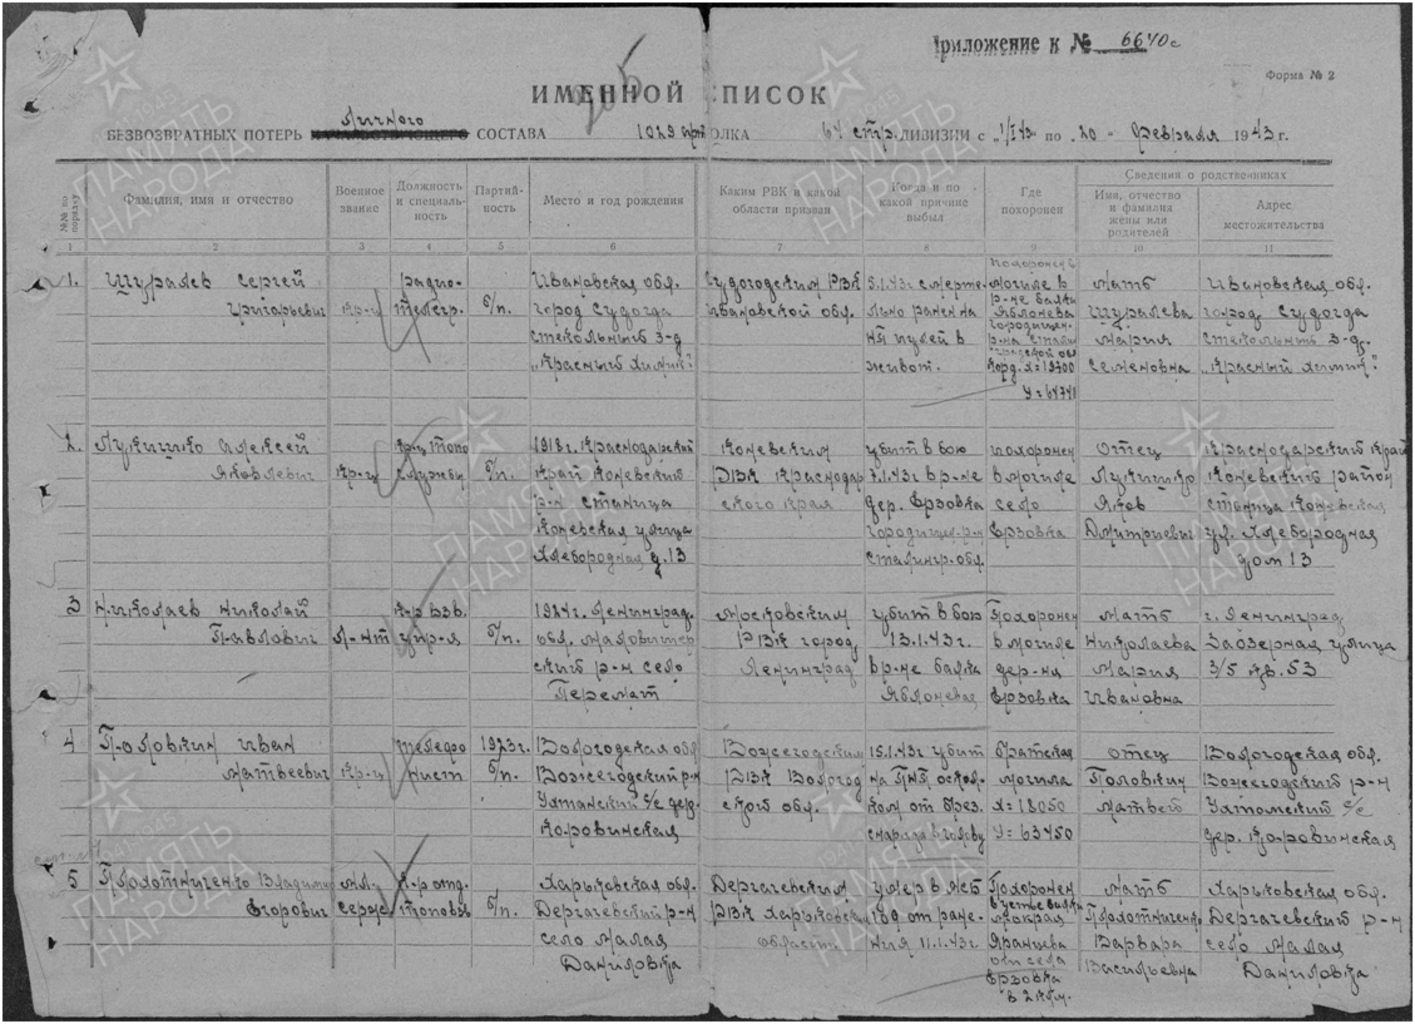 Приложение к № 6640с
Форма № 2
906
ИМЕННОЙ СПИСОК
БЕЗВОЗВРАТНЫХ ПОТЕРЬ личного СОСТАВА 1029 арт ПОЛКА 64 стр. ДИВИЗИИ с "1/I 43 по "20 - февраля 1943 г.
№№ по порядку
Фамилия, имя и отчество
Военное звание
Должность и специальность
Партийность
Место и год рождения
Каким РВК и какой области призван
Когда и по какой причине выбыл
Где похоронен
Сведения о родственниках
Имя, отчество и фамилия жены или родителей
Адрес местожительства
1 2 3 4 5 6 7 8 9 10 11
1. Шуралев Сергей Григорьевич
кр-ц
радио-телегр.
б/п.
Ивановская обл. город Судогда стекольный з-д "Красный химик"
Судогодским РВК Ивановской обл.
5.1.43г смертельно ранен пулей в живот.
похоронен в могиле в р-не балки Яблоневая Городищен. р-на Сталинградской обл Корд. х=18700 У=64741
мать Шуралева Мария Семеновна
Ивановская обл. город Судогда стекольный з-д. "Красный химик"
2. Лукишко Алексей Яковлевич
кр-ц
кр-ц топо службы
б/п.
1918г. Краснодарский край Каневский р-н станица Каневская улица Хлебородная д.13
Каневским РВК Краснодарского края
убит в бою 7.1.43г в р-не дер. Ерзовка Городищен. р-н Сталингр. обл.
похоронен в могиле село Ерзовка
отец Лукишко Яков Дмитриевич
Краснодарский край Каневский район станица Каневская ул. Хлебородная дом 13
3 Николаев Николай Павлович
Л-нт
к-р взв. упр-я
б/п.
1924г. Ленинград. обл. Маловишерский р-н село
Московским РВК город Ленинград
убит в бою 13.1.43г. в р-не балка Яблоневая
Похоронен в могиле дер-ня Ерзовка
мать Николаева Мария Ивановна
г. Ленинград Заозерная улица 3/5 кв. 53
4 Половкин Иван Матвеевич
кр-ц
телефонист
1923г. б/п.
Вологодская обл Вожегодский р-н Ухтомский с/с дер. Коровинская
Вожегодским РВК Вологодской обл.
15.1.43г убит на ПНП осколком от враз. снаряда в голову
братская могила Х=18050 У=63450
отец Половкин Матвей
Вологодская обл. Вожегодский р-н Ухтомский с/с дер. Коровинская
5 Плохотниченко Владимир Егорович
мл. серж.
к-р отд. топовзв
б/п.
Харьковская обл. Дергачевский р-н село Малая Даниловка
Дергачевским РВК Харьковская область
умер в МСБ от ранения 11.1.43г
Похоронен в устье балки Мокрая от села Ерзовка в 2 км.
мать Плохотниченко Варвара Васильевна
Харьковская обл. Дергачевский р-н село Малая Даниловка
ПАМЯТЬ НАРОДА
1941-1945